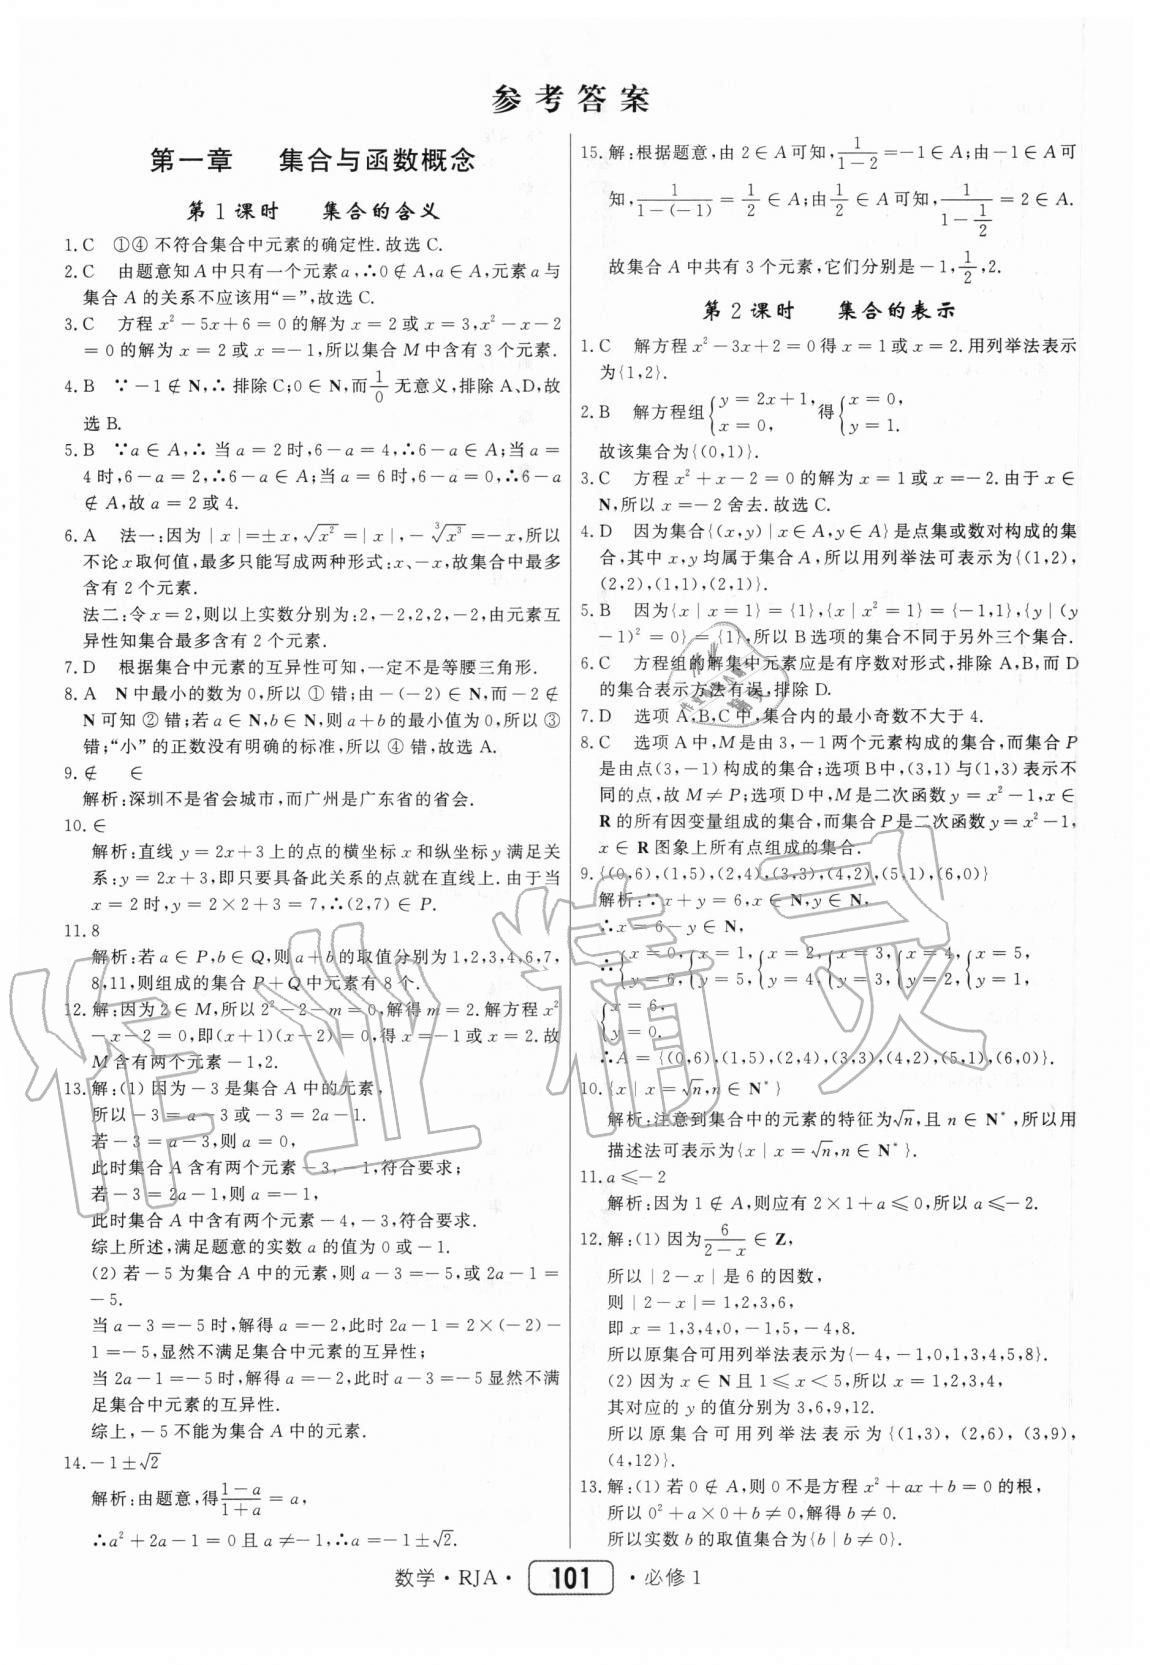 参考答案
第一章　集合与函数概念
第 1 课时　集合的含义
1. C　①④ 不符合集合中元素的确定性. 故选 C.
2. C　由题意知 A 中只有一个元素 a,∴0 ∉ A,a ∈ A,元素 a 与
集合 A 的关系不应该用“=”,故选 C.
3. C　方程 x² − 5x + 6 = 0 的解为 x = 2 或 x = 3,x² − x − 2
= 0 的解为 x = 2 或 x = −1,所以集合 M 中含有 3 个元素.
4. B　∵ −1 ∉ N,∴ 排除 C;0 ∈ N,而 1/0 无意义,排除 A、D,故
选 B.
5. B　∵a ∈ A,∴ 当 a = 2 时,6 − a = 4,∴6 − a ∈ A;当 a =
4 时,6 − a = 2,∴6 − a ∈ A;当 a = 6 时,6 − a = 0,∴6 − a
∉ A,故 a = 2 或 4.
6. A　法一:因为 | x |= ± x,√x² =| x |,− ³√x³ = − x,所以
不论 x 取何值,最多只能写成两种形式:x、−x,故集合中最多
含有 2 个元素.
法二:令 x = 2,则以上实数分别为:2,−2,2,2,−2,由元素互
异性知集合最多含有 2 个元素.
7. D　根据集合中元素的互异性可知,一定不是等腰三角形.
8. A　N 中最小的数为 0,所以 ① 错;由 −(−2) ∈ N,而 −2 ∉
N 可知 ② 错;若 a ∈ N,b ∈ N,则 a + b 的最小值为 0,所以 ③
错;“小”的正数没有明确的标准,所以 ④ 错,故选 A.
9. ∉　∈
解析:深圳不是省会城市,而广州是广东省的省会.
10. ∈
解析:直线 y = 2x + 3 上的点的横坐标 x 和纵坐标 y 满足关
系:y = 2x + 3,即只要具备此关系的点就在直线上. 由于当
x = 2 时,y = 2 × 2 + 3 = 7,∴(2,7) ∈ P.
11. 8
解析:若 a ∈ P,b ∈ Q,则 a + b 的取值分别为 1,2,3,4,6,7,
8,11,则组成的集合 P + Q 中元素有 8 个.
12. 解:因为 2 ∈ M,所以 2² − 2 − m = 0,解得 m = 2. 解方程 x²
− x − 2 = 0,即(x + 1)(x − 2) = 0,得 x = −1 或 x = 2. 故
M 含有两个元素 −1,2.
13. 解:(1) 因为 −3 是集合 A 中的元素,
所以 −3 = a − 3 或 −3 = 2a − 1.
若 −3 = a − 3,则 a = 0,
此时集合 A 含有两个元素 −3,−1,符合要求;
若 −3 = 2a − 1,则 a = −1,
此时集合 A 中含有两个元素 −4,−3,符合要求.
综上所述,满足题意的实数 a 的值为 0 或 −1.
(2) 若 −5 为集合 A 中的元素,则 a − 3 = −5,或 2a − 1 =
−5.
当 a − 3 = −5 时,解得 a = −2,此时 2a − 1 = 2 × (−2) −
1 = −5,显然不满足集合中元素的互异性;
当 2a − 1 = −5 时,解得 a = −2,此时 a − 3 = −5 显然不满
足集合中元素的互异性.
综上,−5 不能为集合 A 中的元素.
14. −1 ± √2
解析:由题意,得 (1 − a)/(1 + a) = a,
∴a² + 2a − 1 = 0 且 a ≠ −1,∴a = −1 ± √2.
15. 解:根据题意,由 2 ∈ A 可知,1/(1 − 2) = −1 ∈ A;由 −1 ∈ A 可
知,1/(1 − (−1)) = 1/2 ∈ A;由 1/2 ∈ A 可知,1/(1 − 1/2) = 2 ∈ A.
故集合 A 中共有 3 个元素,它们分别是 −1,1/2,2.
第 2 课时　集合的表示
1. C　解方程 x² − 3x + 2 = 0 得 x = 1 或 x = 2. 用列举法表示
为{1,2}.
2. B　解方程组{y = 2x + 1, x = 0, 得{x = 0, y = 1.
故该集合为{(0,1)}.
3. C　方程 x² + x − 2 = 0 的解为 x = 1 或 x = −2. 由于 x ∈
N,所以 x = −2 舍去. 故选 C.
4. D　因为集合{(x,y) | x ∈ A,y ∈ A} 是点集或数对构成的集
合,其中 x,y 均属于集合 A,所以用列举法可表示为{(1,2),
(2,2),(1,1),(2,1)}.
5. B　因为{x | x = 1} = {1},{x | x² = 1} = {−1,1},{y | (y
− 1)² = 0} = {1},所以 B 选项的集合不同于另外三个集合.
6. C　方程组的解集中元素应是有序数对形式,排除 A,B,而 D
的集合表示方法有误,排除 D.
7. D　选项 A,B,C 中,集合内的最小奇数不大于 4.
8. C　选项 A 中,M 是由 3,−1 两个元素构成的集合,而集合 P
是由点(3,−1) 构成的集合;选项 B 中,(3,1) 与(1,3) 表示不
同的点,故 M ≠ P;选项 D 中,M 是二次函数 y = x² − 1,x ∈
R 的所有因变量组成的集合,而集合 P 是二次函数 y = x² − 1,
x ∈ R 图象上所有点组成的集合.
9. {(0,6),(1,5),(2,4),(3,3),(4,2),(5,1),(6,0)}
解析:∵x + y = 6,x ∈ N,y ∈ N,
∴x = 6 − y ∈ N,
∴{x = 0, y = 6, {x = 1, y = 5, {x = 2, y = 4, {x = 3, y = 3, {x = 4, y = 2, {x = 5, y = 1,
{x = 6, y = 0.
∴A = {(0,6),(1,5),(2,4),(3,3),(4,2),(5,1),(6,0)}.
10. {x | x = √n,n ∈ N*}
解析:注意到集合中的元素的特征为√n,且 n ∈ N*,所以用
描述法可表示为{x | x = √n,n ∈ N*}.
11. a ⩽ −2
解析:因为 1 ∉ A,则应有 2 × 1 + a ⩽ 0,所以 a ⩽ −2.
12. 解:(1) 因为 6/(2 − x) ∈ Z,
所以 | 2 − x | 是 6 的因数,
则 | 2 − x |= 1,2,3,6,
即 x = 1,3,4,0,−1,5,−4,8.
所以原集合可用列举法表示为{−4,−1,0,1,3,4,5,8}.
(2) 因为 x ∈ N 且 1 ⩽ x < 5,所以 x = 1,2,3,4,
其对应的 y 的值分别为 3,6,9,12.
所以原集合可用列举法表示为{(1,3),(2,6),(3,9),
(4,12)}.
13. 解:(1) 若 0 ∉ A,则 0 不是方程 x² + ax + b = 0 的根,
所以 0² + a × 0 + b ≠ 0,解得 b ≠ 0.
所以实数 b 的取值集合为{b | b ≠ 0}.
数学 · RJA · 101 · 必修 1
作业精灵